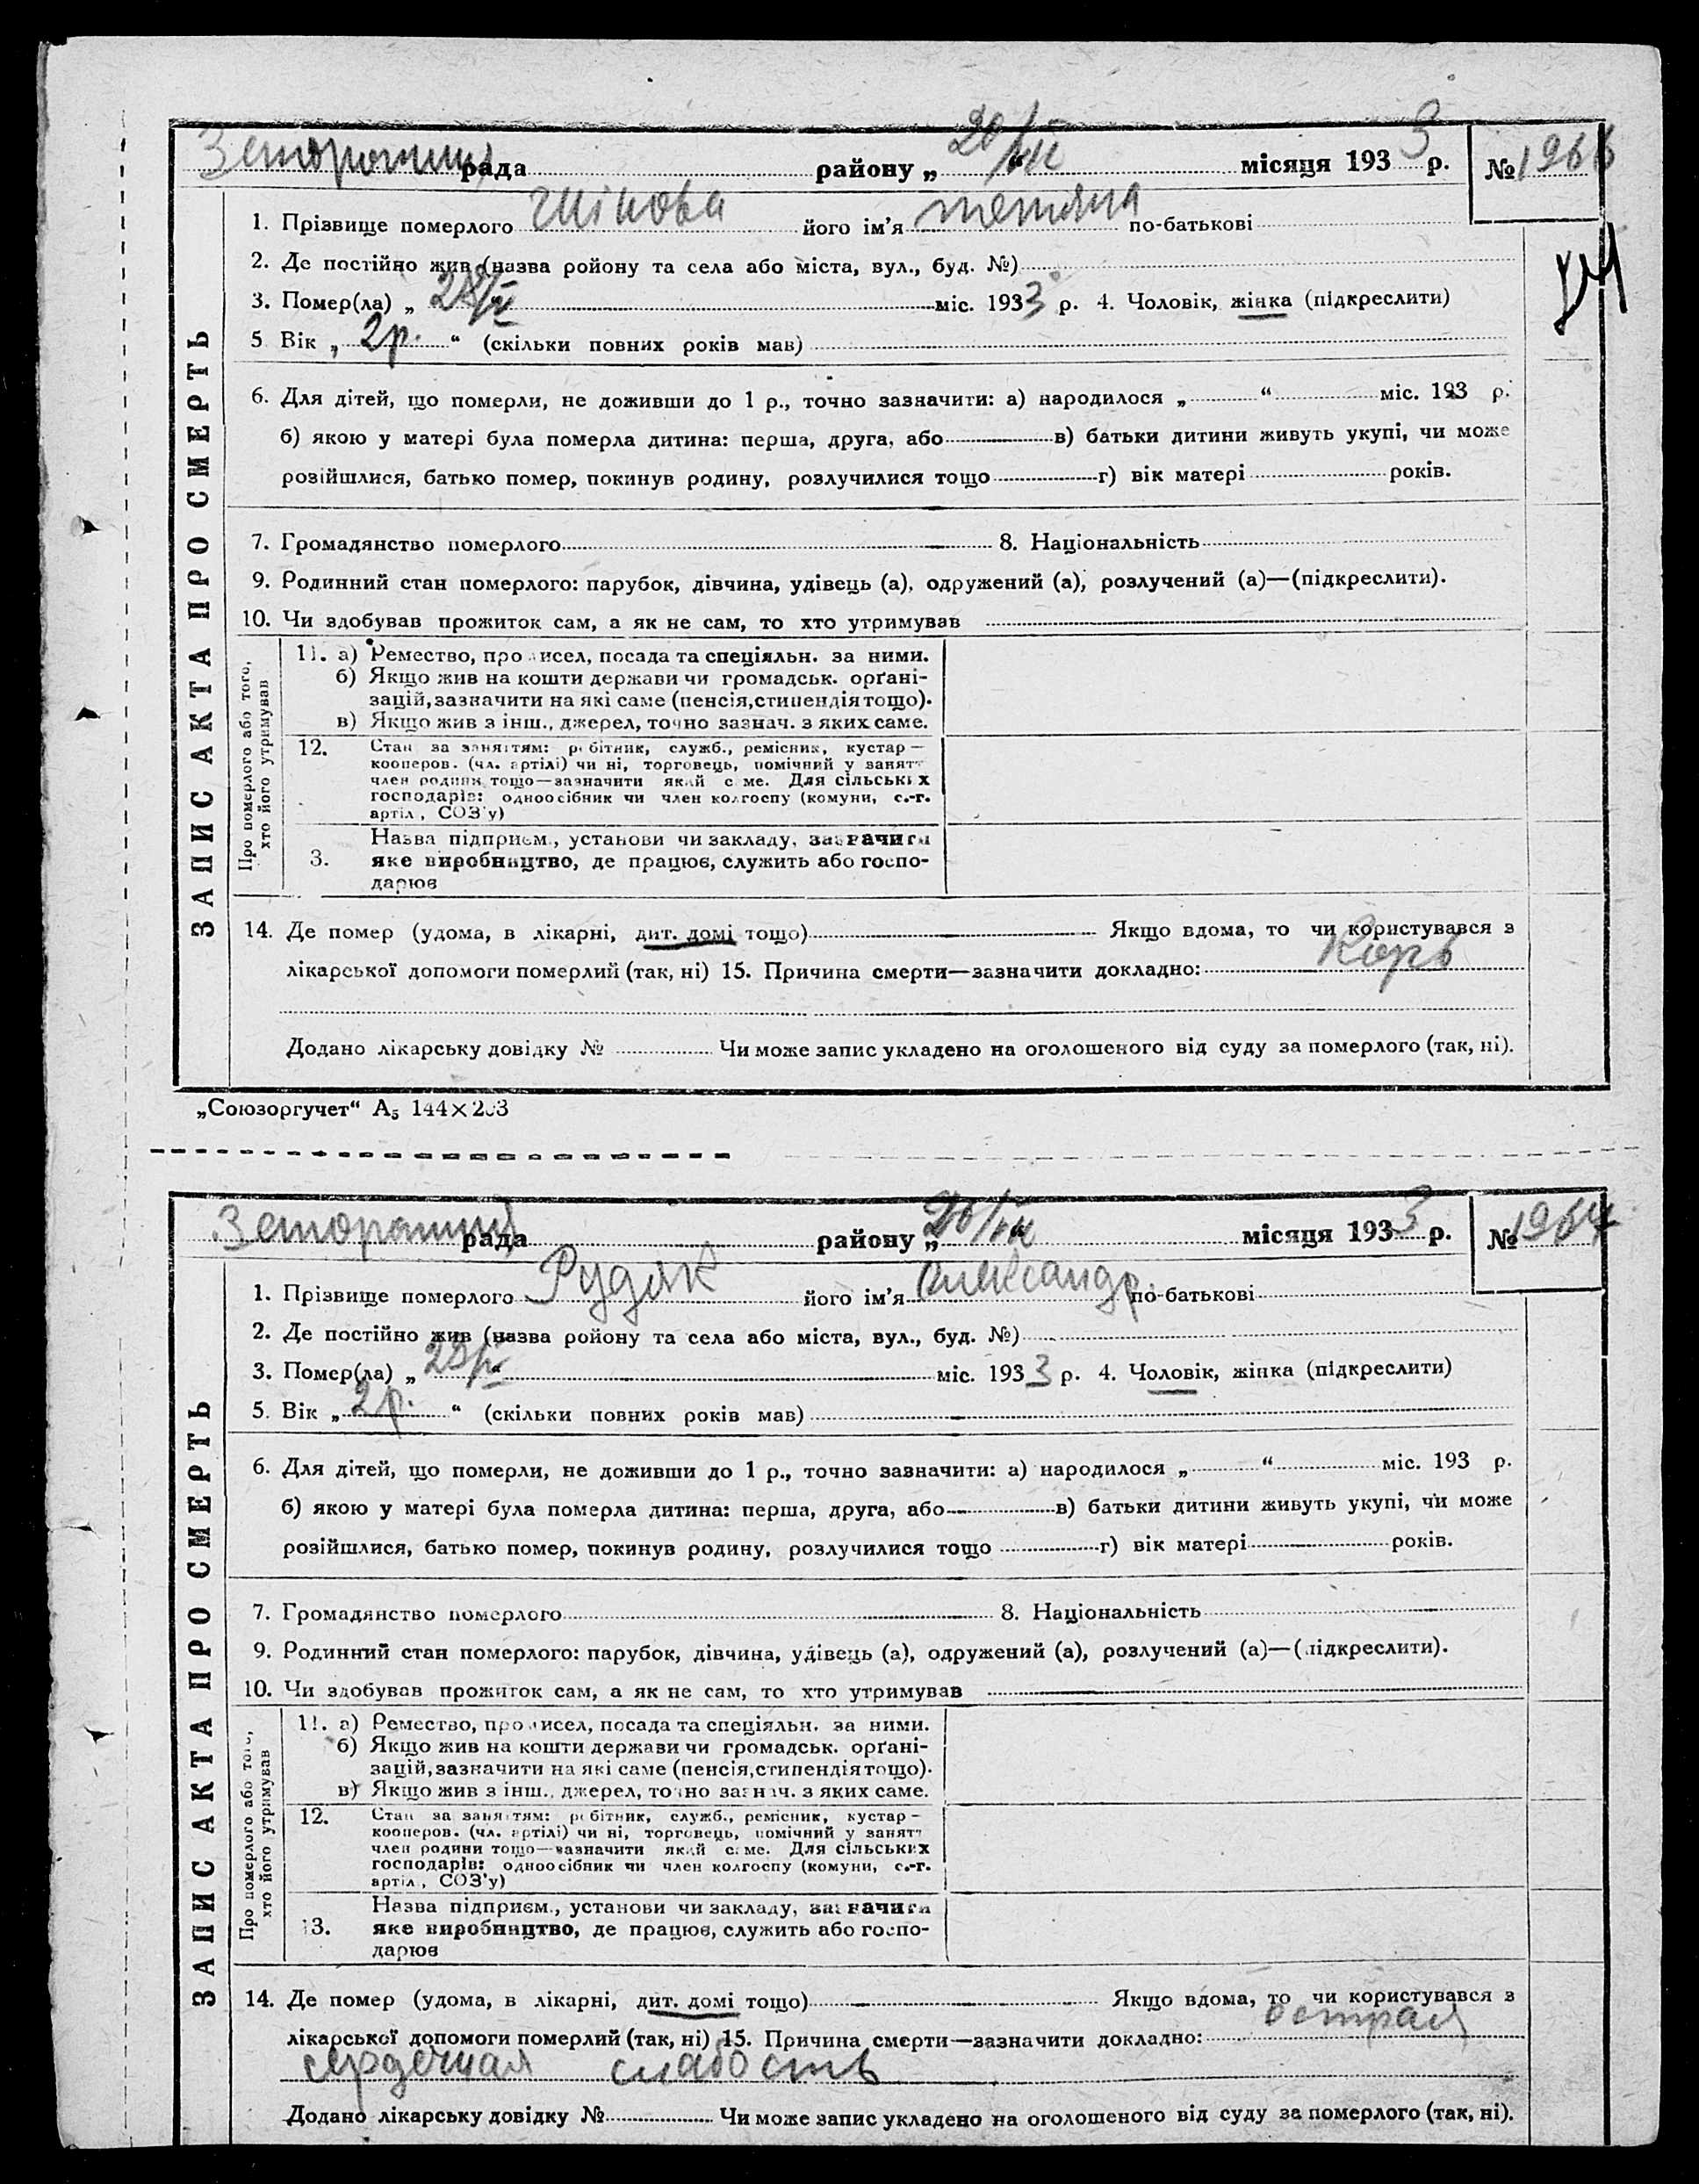 рада району „ 20/VII “ місяця 1933 р. № 1966
1. Прізвище померлого його ім'я тетяна по-батькові
2. Де постійно жив (назва ройону та села або міста, вул., буд. №)
3. Помер(ла) „ міс. 1933 р. 4. Чоловік, жінка (підкреслити)
5 Вік „ 2р. “ (скільки повних років мав)
6. Для дітей, що померли, не доживши до 1 р., точно зазначити: а) народилося „ “ міс. 193 р.
б) якою у матері була померла дитина: перша, друга, або в) батьки дитини живуть укупі, чи може
розійшлися, батько помер, покинув родину, розлучилися тощо г) вік матері років.
7. Громадянство померлого 8. Національність
9. Родинний стан померлого: парубок, дівчина, удівець (а), одружений (а), розлучений (а)—(підкреслити).
10. Чи здобував прожиток сам, а як не сам, то хто утримував
ЗАПИС АКТА ПРО СМЕРТЬ
Про померлого або того,
хто його утримував
11. а) Ремество, про исел, посада та спеціяльн. за ними.
б) Якщо жив на кошти держави чи громадськ. орґані-
зацій, зазначити на які саме (пенсія, стипендія тощо).
в) Якщо жив з інш., джерел, точно зазнач. з яких саме.
12. Стан за заняттям: робітник, служб., ремісник, кустар —
кооперов. (чл. артілі) чи ні, торговець, помічний у занятт
член родини тощо—зазначити який саме. Для сільських
господарів: одноосібник чи член колгоспу (комуни, с.-г.
артіл, СОЗ'у)
Назва підприєм., установи чи закладу, зазначити
3. яке виробництво, де працює, служить або госпо-
дарює
14. Де помер (удома, в лікарні, дит. домі тощо) Якщо вдома, то чи користувався з
лікарської допомоги померлий (так, ні) 15. Причина смерти—зазначити докладно: Корь
Додано лікарську довідку № Чи може запис укладено на оголошеного від суду за померлого (так, ні).
„Союзоргучет“ А5 144×203
рада району „ 20/VII “ місяця 1933 р. № 1964
1. Прізвище померлого Рудяк його ім'я Олександр. по-батькові
2. Де постійно жив (назва ройону та села або міста, вул., буд. №)
3. Помер(ла) „ міс. 1933 р. 4. Чоловік, жінка (підкреслити)
5. Вік „ 2р. “ (скільки повних років мав)
6. Для дітей, що померли, не доживши до 1 р., точно зазначити: а) народилося „ “ міс. 193 р.
б) якою у матері була померла дитина: перша, друга, або в) батьки дитини живуть укупі, чи може
розійшлися, батько помер, покинув родину, розлучилися тощо г) вік матері років.
7. Громадянство померлого 8. Національність
9. Родинний стан померлого: парубок, дівчина, удівець (а), одружений (а), розлучений (а)—(підкреслити).
10. Чи здобував прожиток сам, а як не сам, то хто утримував
ЗАПИС АКТА ПРО СМЕРТЬ
Про померлого або того,
хто його утримував
11. а) Ремество, про исел, посада та спеціяльн. за ними.
б) Якщо жив на кошти держави чи громадськ. орґані-
зацій, зазначити на які саме (пенсія, стипендія тощо).
в) Якщо жив з інш., джерел, точно зазнач. з яких саме.
12. Стан за заняттям: робітник, служб., ремісник, кустар —
кооперов. (чл. артілі) чи ні, торговець, помічний у занятт
член родини тощо—зазначити який саме. Для сільських
господарів: одноосібник чи член колгоспу (комуни, с.-г.
артіл., СОЗ'у)
Назва підприєм., установи чи закладу, зазначити
13. яке виробництво, де працює, служить або госпо-
дарює
14. Де помер (удома, в лікарні, дит. домі тощо) Якщо вдома, то чи користувався з
лікарської допомоги померлий (так, ні) 15. Причина смерти—зазначити докладно: острая
сердечная слабость
Додано лікарську довідку № Чи може запис укладено на оголошеного від суду за померлого (так, ні).